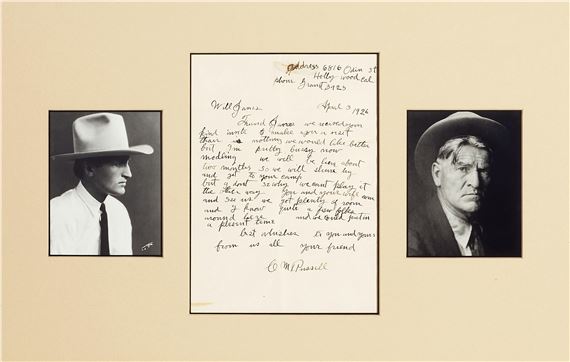 address 6816 Odin st
Hollywood Cal
phone Granit 5923
Will James April 3 1926
Friend James we received your
kind invite to make you a visit
thair is nothing we would like better
but I'm pritty buisy now
modeling we will be hear about
two months so we will slime
and get to your camp
but I dont se why we cant play it
the other way you and your wife com
and see us we got plenty of room
and I know quite a fiew folks
around here and we could put in
a plesent time
best whishes to you and yours
from us all your friend
C M Russell